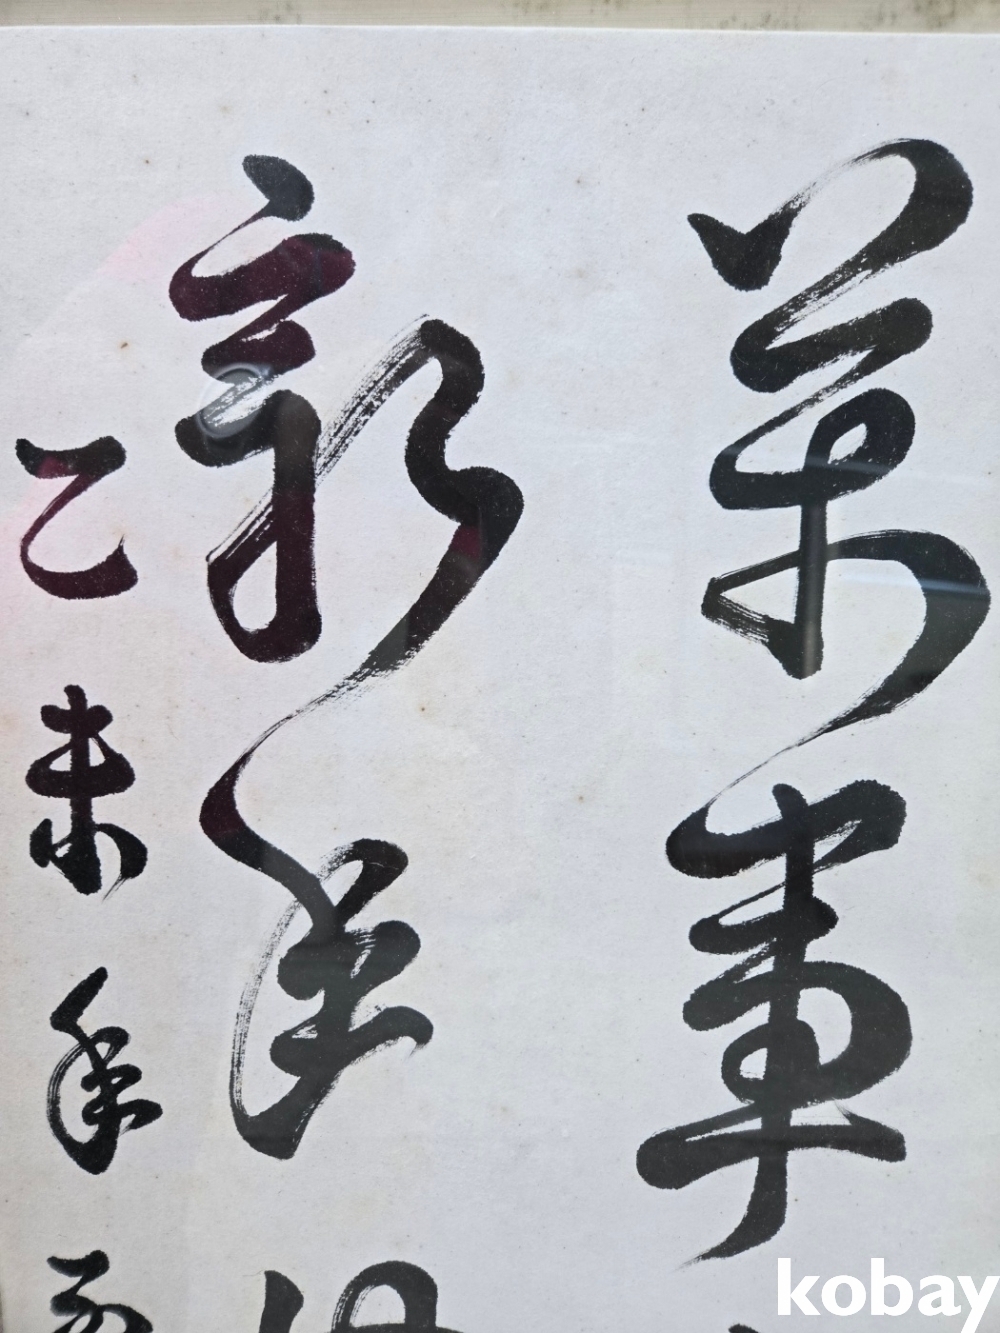 萬事
新年
乙未年
kobay